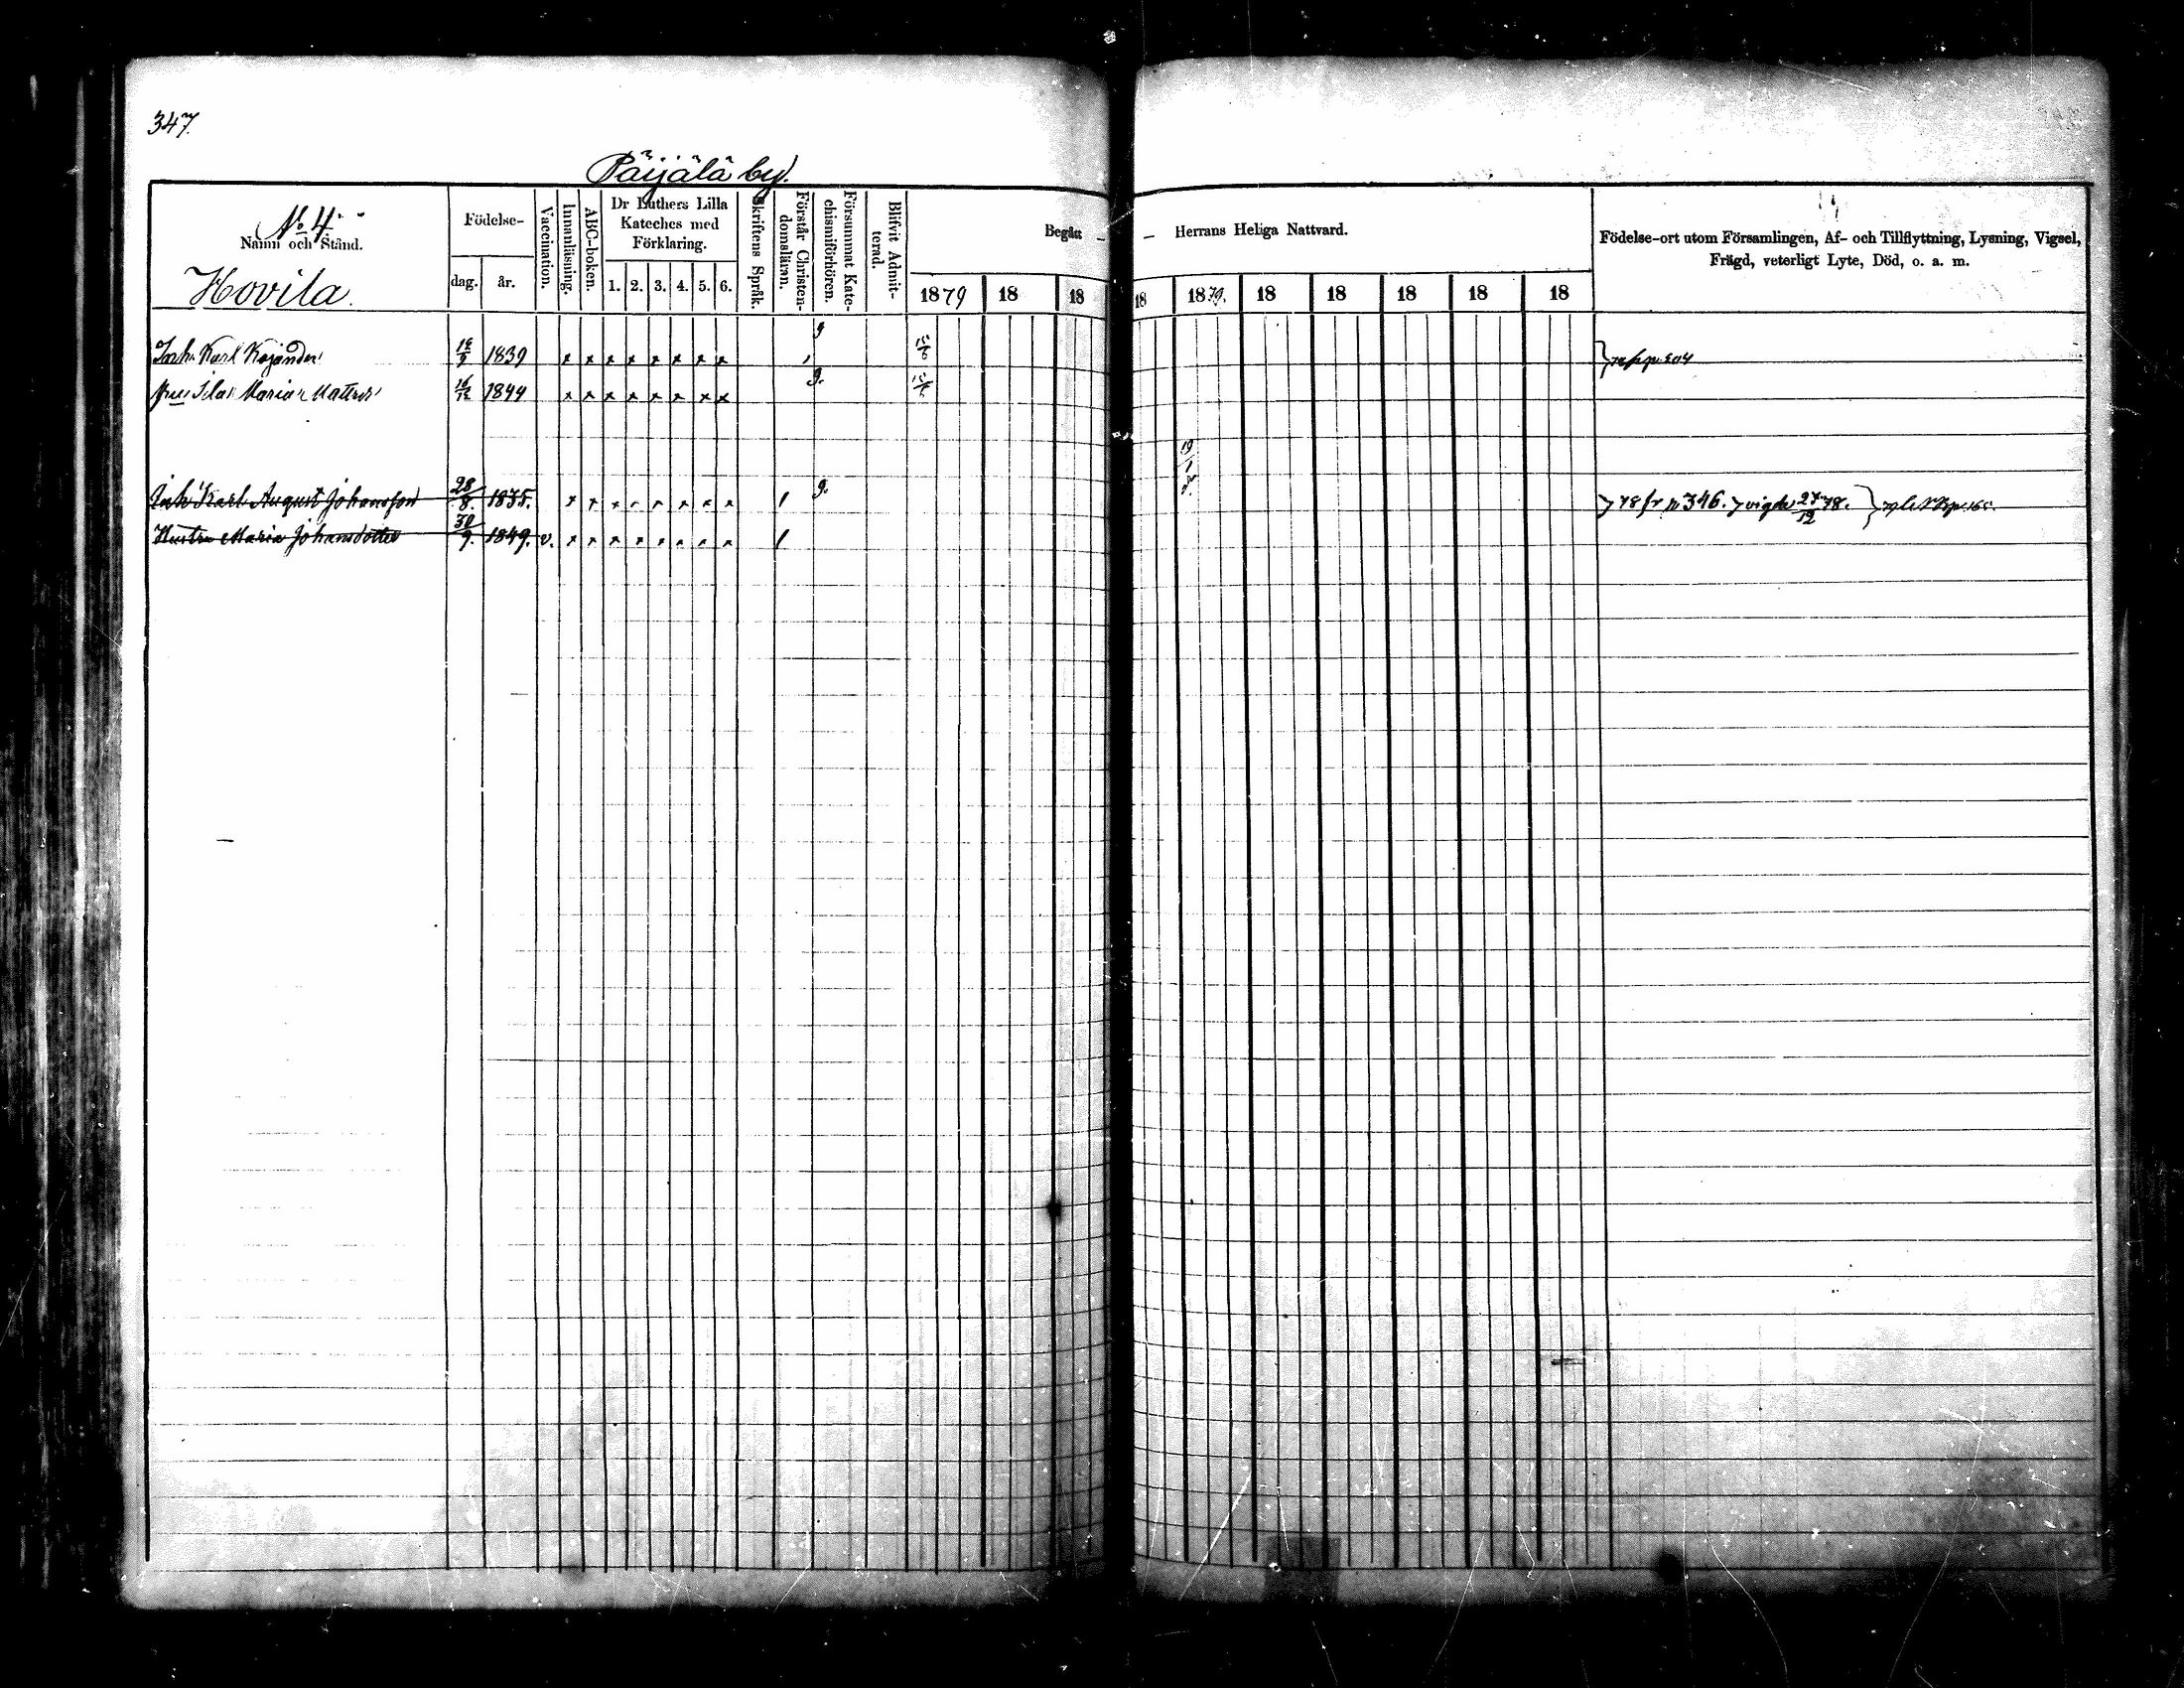 347.
Päijälä by.
No 4.
Namn och Stånd.
Hovila.
Födelse-
dag.
år.
Vaccination.
Innanläsning.
ABC-boken.
Dr Luthers Lilla
Kateches med
Förklaring.
1. 2. 3. 4. 5. 6.
Skriftens Språk.
Förstår Christen-
domsläran.
Försummat Kate-
chismiförhören.
Blifvit Admit-
terad.
Begått — — Herrans Heliga Nattvard.
1879 18 18 18 1879. 18 18 18 18 18
Födelse-ort utom Församlingen, Af- och Tillflyttning, Lysning, Vigsel,
Frägd, veterligt Lyte, Död, o. a. m.
Inh. Karl 1839 x x x x x x x x g
Maria 16/12 1844 x x x x x x x x g.
Inh. Karl August Johansson 28/8. 1835. x x x x x x x x / g. 78 fr p 346. vigde 27/12 78.
Hustru Maria Johansdotter 30/9. 1849. v. x x x x x x x x /